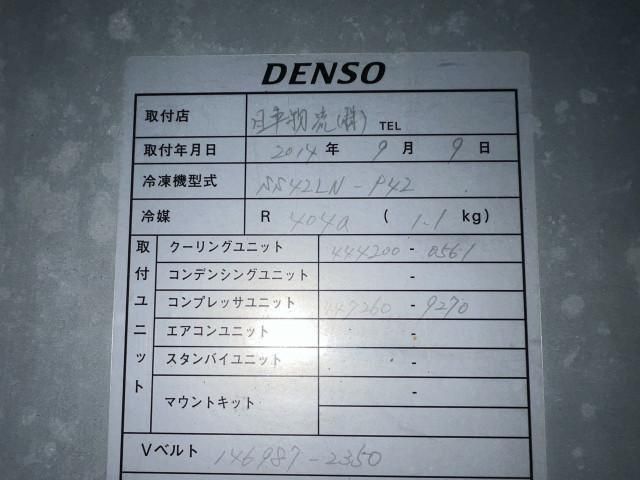 DENSO
取付店 日車物流(株) TEL
取付年月日 2014 年 9 月 9 日
冷凍機型式 SS42LN-P42
冷媒 R 404a ( 1.1 kg)
取付ユニット
クーリングユニット 444200-0561
コンデンシングユニット -
コンプレッサユニット 447260-9270
エアコンユニット -
スタンバイユニット -
マウントキット -
Vベルト 146987-2350